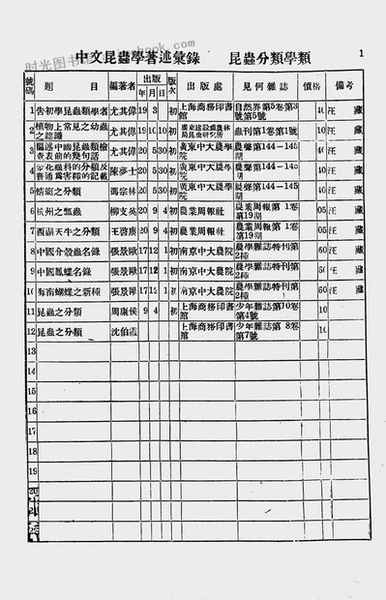 时光图书馆
中文昆蟲學著述彙錄 昆蟲分類學類 1
號碼 題目 編著者 出版 年 月 日 版次 出版處 見何雜誌 價格 備考
1 告初學昆蟲類學者 尤其偉 19 3 初 上海商務印書館 自然界第5卷第3號第5號 汪藏
2 植物上常見之幼蟲之認識 尤其偉 19 10 10 初 蟲刊第1卷第1號 10 汪藏
3 尤其偉 20 5 30 初 廣東中大農學院 農聲第144—145期 40 汪藏
4 陳夢士 20 5 30 初 廣東中大農學院 農聲第144—145期 40 汪藏
5 蜻蜓之分類 馮宗林 20 5 30 初 廣東中大農學院 農聲第144—145期 40 汪藏
6 杭州之瓢蟲 柳支英 20 9 4 初 農業周報社 農業周報第1卷第19期 05 汪藏
7 西湖天牛之分類 王啓虞 20 9 4 初 農業周報社 農業周報第1卷第19期 05 汪藏
8 中國介殼蟲名錄 張景歐 17 12 1 初 南京中大農院 農學雜誌特刊第2種 60 汪藏
9 中國鳳蝶名錄 張景歐 17 12 1 初 南京中大農院 農學雜誌特刊第2種 汪藏
10 海南蝴蝶之新種 張景歐 17 12 1 初 南京中大農院 農學雜誌特刊第2種 汪藏
11 昆蟲之分類 周康侯 9 4 初 上海商務印書館 少年雜誌第10卷第4號 10
12 昆蟲之分類 沈伯霞 上海商務印書館 少年雜誌第8卷第7號 10
13
14
15
16
17
18
19